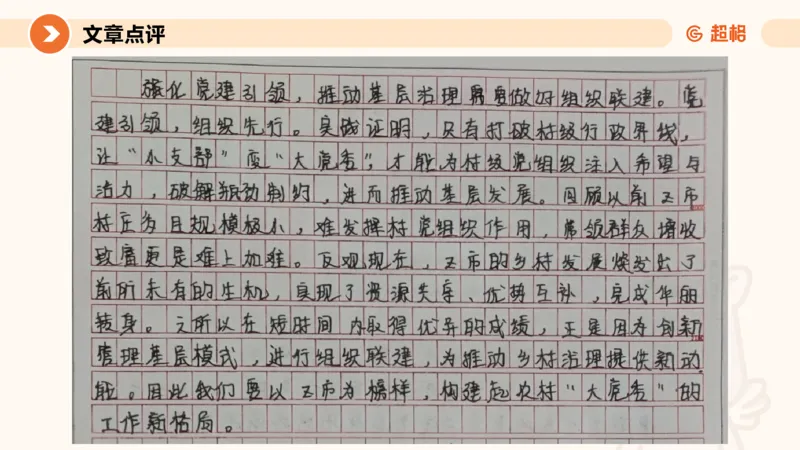 文章点评
超格
强化党建引领，推动基层治理需要做好组织联建。党
建引领，组织先行。实践证明，只有打破村级行政界线，
让“小支部”变“大党委”，才能为村级党组织注入希望与
活力，破解振动制约，进而推动基层发展。回顾以前Z市
村庄多且规模极小，难发挥村党组织作用，带领群众增收
致富更是难上加难。反观现在，Z市的乡村发展焕发出了
前所未有的生机，实现了资源共享、优势互补，完成华丽
转身。之所以在短时间内取得优异的成绩，正是因为创新
管理基层模式，进行组织联建，为推动乡村治理提供新动
能。因此我们要以Z市为榜样，构建起农村“大党委”的
工作新格局。